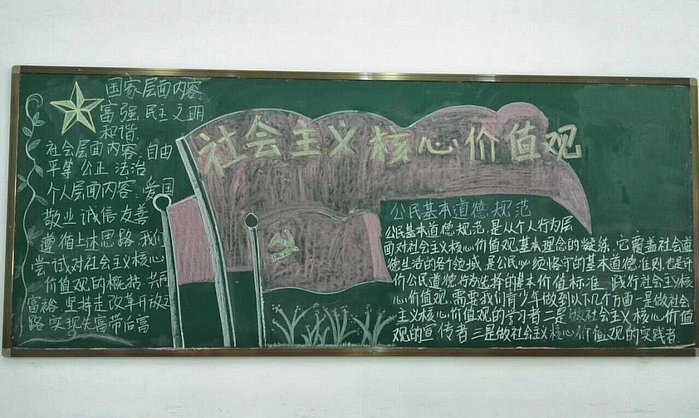 国家层面内容
富强 民主 文明
和谐
社会层面内容:自由
平等 公正 法治
个人层面内容:爱国
敬业 诚信 友善
遵循上述思路,我们
尝试对社会主义核心
价值观的概括 共同
富裕 坚持走改革开放之
路 实现先富带后富
社会主义核心价值观
公民基本道德规范
公民基本道德规范,是从个人行为层
面对社会主义核心价值观基本理念的凝练,它覆盖社会道
德生活的各个领域,是公民必须恪守的基本道德准则,也是评
价公民道德行为选择的基本价值标准 践行社会主义核
心价值观,需要我们青少年做到以下几个方面一是做社会
主义核心价值观的学习者二是做社会主义核心价值
观的宣传者三是做社会主义核心价值观的实践者